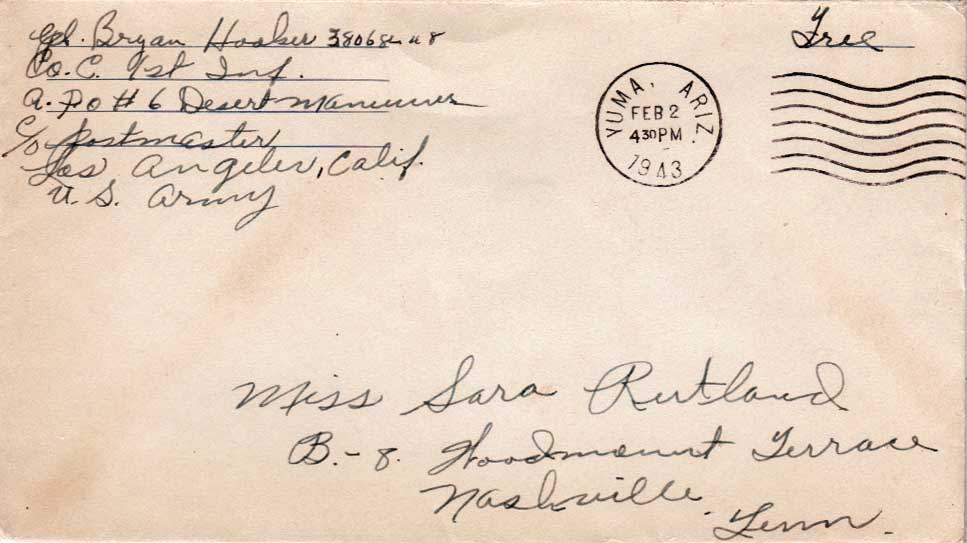 Cpl. Bryan Hooker
Co. C. 1st Inf.
A.P.O # 6 Desert Maneuver
c/o Postmaster,
Los Angeles, Calif.
U.S. Army
Free
YUMA, ARIZ.
FEB 2
430 PM
1943
Miss Sara Rutland
B.-8. Woodmount Terrace
Nashville,
Tenn.